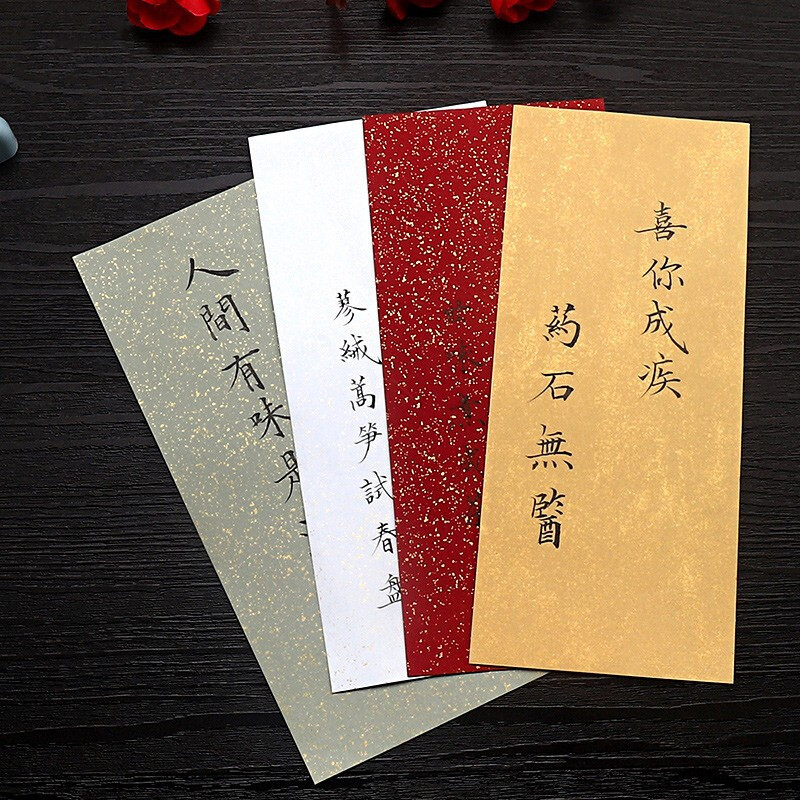 喜你成疾
葯石無醫
蓼絨蒿笋試春盤
人間有味是